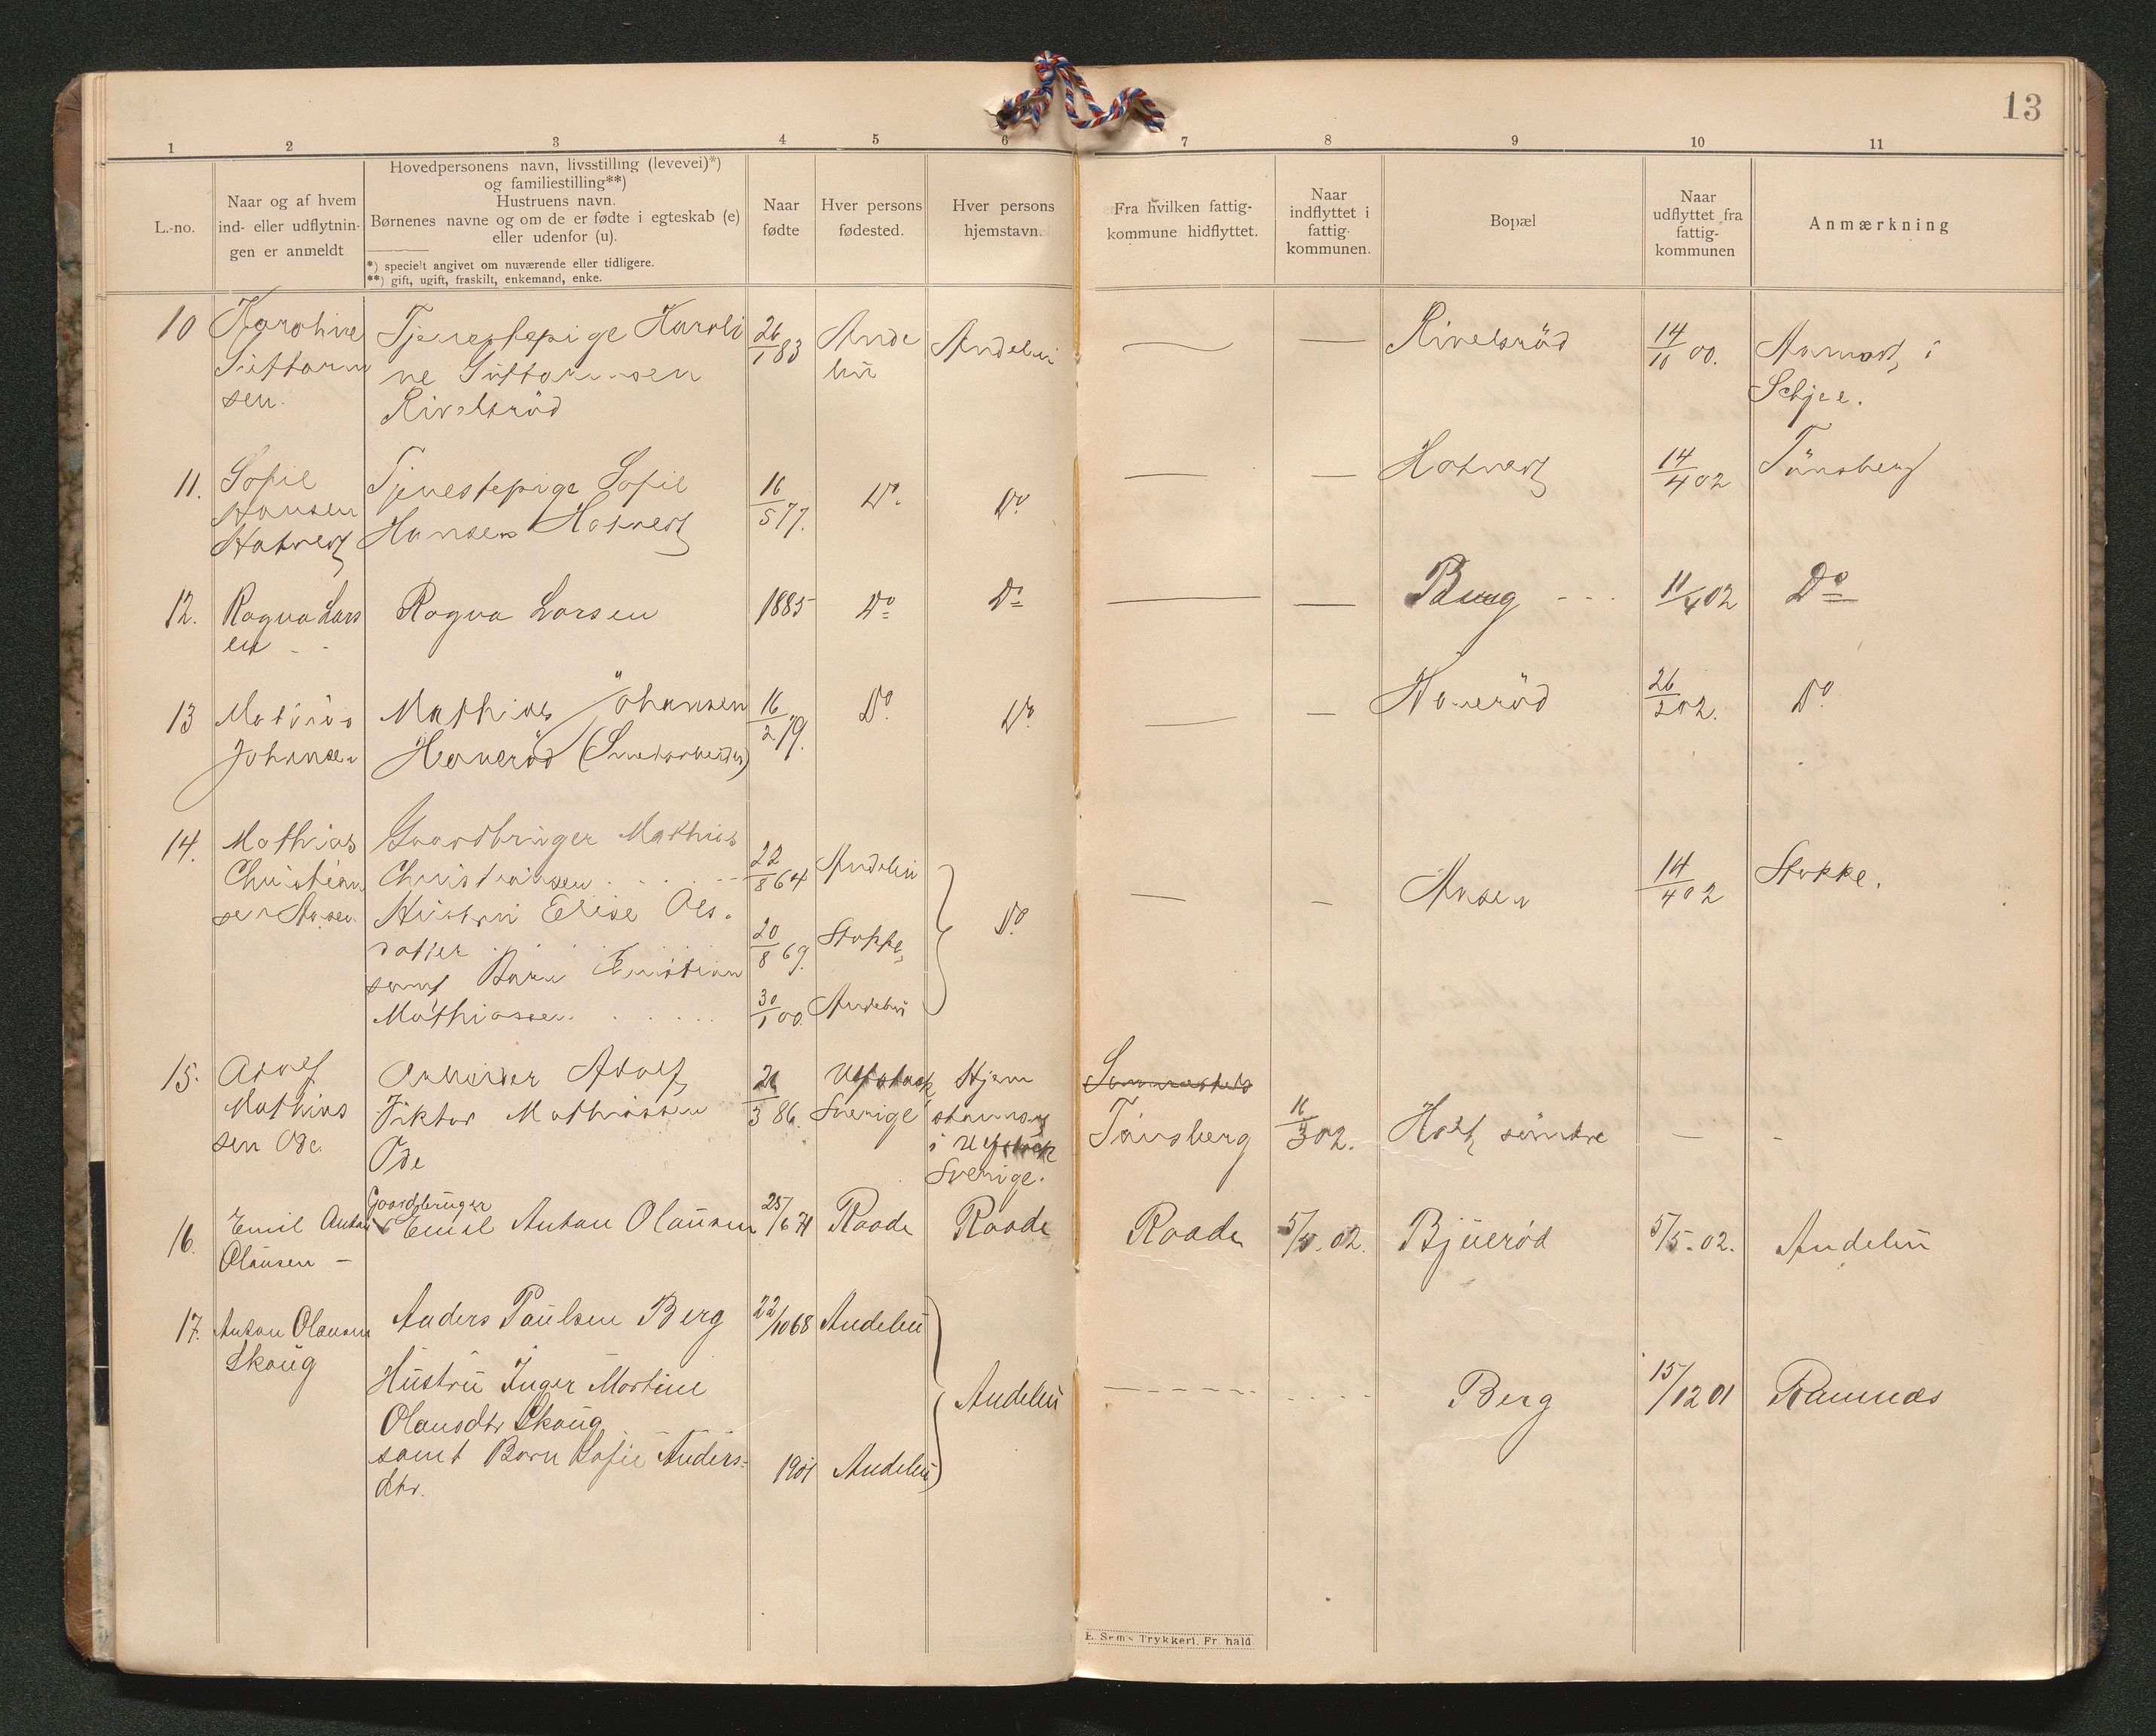 13
1 2 3 4 5 6 7 8 9 10 11
L.-no.
Naar og af hvem
ind- eller udflytnin-
gen er anmeldt
Hovedpersonens navn, livsstilling (levevei)*)
og familiestilling**)
Hustruens navn.
Børnenes navne og om de er fødte i egteskab (e)
eller udenfor (u).
*) specielt angivet om nuværende eller tidligere.
**) gift, ugift, fraskilt, enkemand, enke.
Naar
fødte
Hver persons
fødested.
Hver persons
hjemstavn.
Fra hvilken fattig-
kommune hidflyttet.
Naar
indflyttet i
fattig-
kommunen.
Bopæl
Naar
udflyttet fra
fattig-
kommunen
Anmærkning
10
Karoline
sen.
Tjenestepige Karoli
ne
Rivelsröd
26/1 83
Ande
bü
Andebü
—
—
Rivelsröd
14/10 00.
i
11.
Sofie
Hansen
Hotvedt
Tjenestepige Sofie
Hansen Hotvedt
16/5 77.
Do.
Do.
—
—
Hotvedt
14/4 02
Tönsberg
12.
Ragna Lars
en - -
Ragna Larsen
1885
Do
Do
—
—
Berg - - -
11/4 02
Do
13
Mathias
Johansen
Mathias Johansen
Haneröd (Smedarbeider)
16/2 79.
Do.
Do.
—
—
Haneröd
02.
Do.
14.
Mathias
Christian
sen Aasen
Gaardbruger Mathias
Christiansen . . . .
Hustru Elise Ols.
datter . . . .
samt Barn Kristian
Mathiassen. . . . . .
22/8 64
20/8 69.
30/1 00.
Andebü
Stokke,
Andebü
Do.
—
—
Aasen
14/4 02
Stokke.
15.
Adolf
Mathias
sen Öde.
Arbeider Adolf
Viktor Mathiassen
Öde
86.
Sverige
Hjem
i
Sverige.
Tönsberg
16/3 02.
Holt söndre
—
-
16.
Emil Anton
Olausen —
Gaardbruger
Emil Anton Olausen
25/6 71
Raade
Raade
Raade
5/5. 02.
Bjuerød
5/5. 02.
Andebü
17.
Anton Olausen
Skoug
Anders Paulsen Berg
Hustrü Inger Martine
Olausdtr Skoug
samt Barn Sofie Anders-
dtr.
22/10 68
1901
Andebü
Andebü
Andebü
- - - - - -
. . . .
Berg
15/12 01
Ramnæs
E. Sem's Trykkeri, Fr. hald